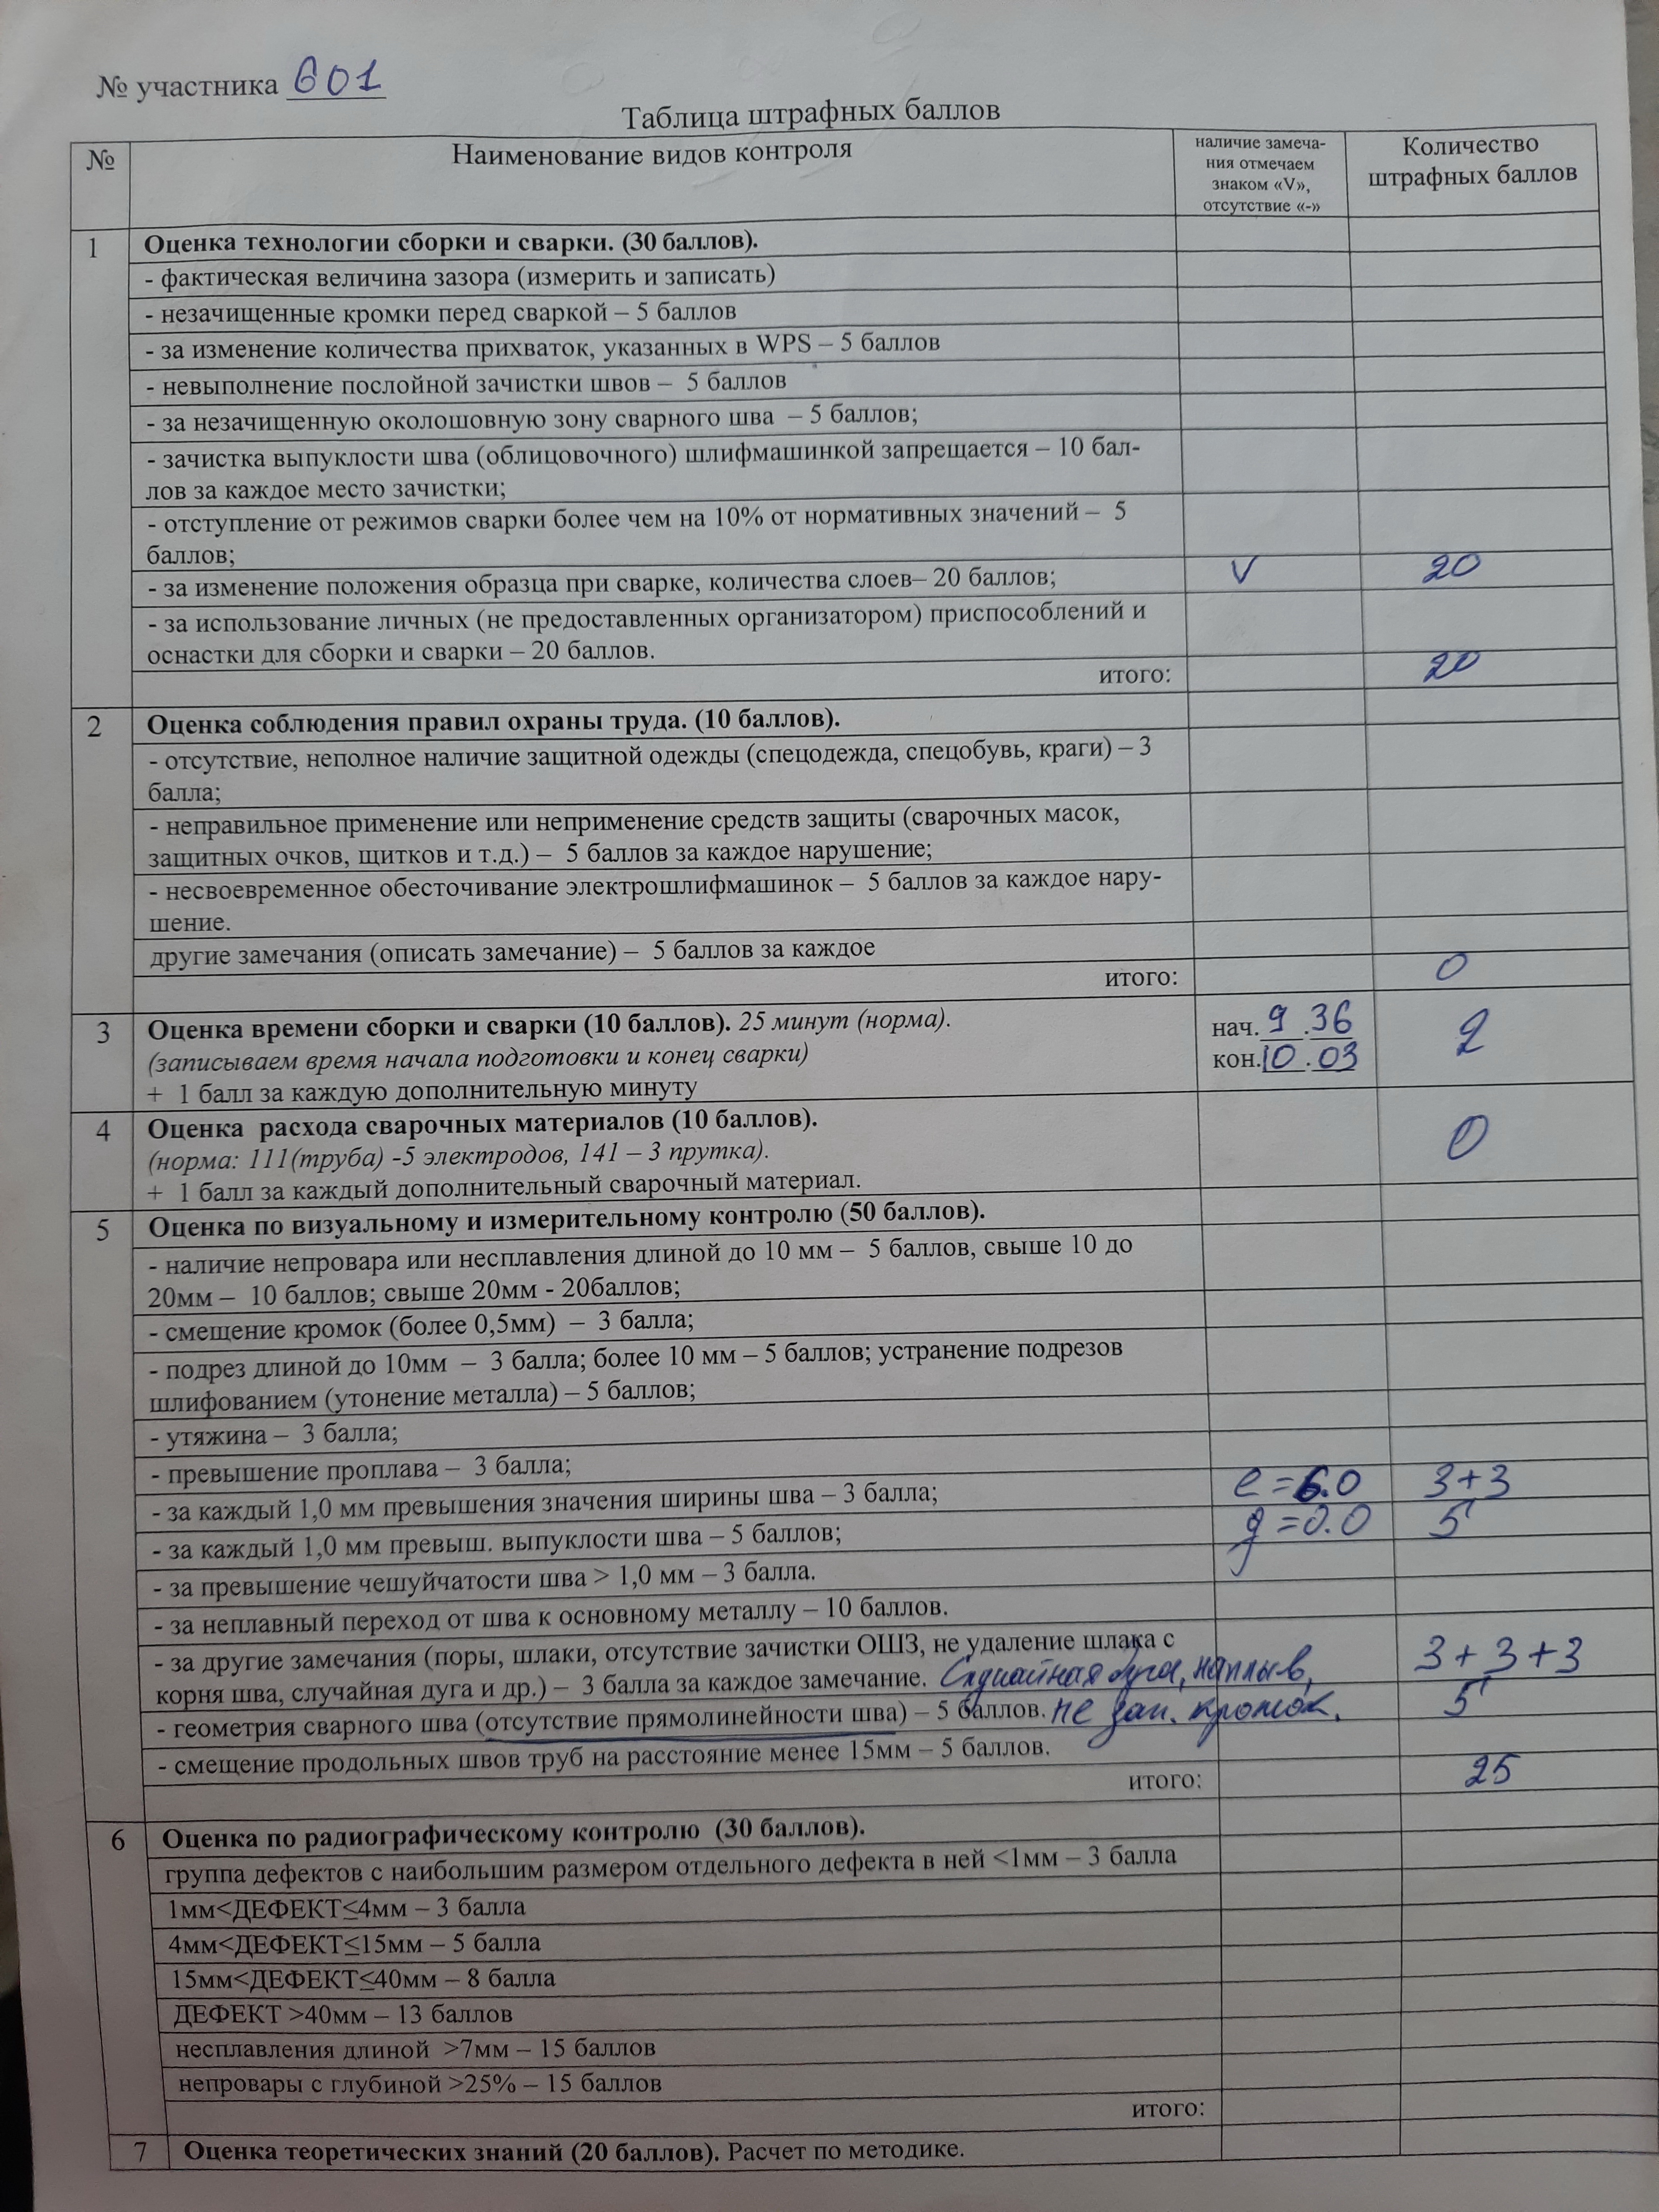 № участника 601
Таблица штрафных баллов
№ Наименование видов контроля наличие замеча-
ния отмечаем
знаком «V»,
отсутствие «-» Количество
штрафных баллов
1 Оценка технологии сборки и сварки. (30 баллов).
- фактическая величина зазора (измерить и записать)
- незачищенные кромки перед сваркой – 5 баллов
- за изменение количества прихваток, указанных в WPS – 5 баллов
- невыполнение послойной зачистки швов – 5 баллов
- за незачищенную околошовную зону сварного шва – 5 баллов;
- зачистка выпуклости шва (облицовочного) шлифмашинкой запрещается – 10 бал-
лов за каждое место зачистки;
- отступление от режимов сварки более чем на 10% от нормативных значений – 5
баллов;
- за изменение положения образца при сварке, количества слоев– 20 баллов; V 20
- за использование личных (не предоставленных организатором) приспособлений и
оснастки для сборки и сварки – 20 баллов.
итого: 20
2 Оценка соблюдения правил охраны труда. (10 баллов).
- отсутствие, неполное наличие защитной одежды (спецодежда, спецобувь, краги) – 3
балла;
- неправильное применение или неприменение средств защиты (сварочных масок,
защитных очков, щитков и т.д.) – 5 баллов за каждое нарушение;
- несвоевременное обесточивание электрошлифмашинок – 5 баллов за каждое нару-
шение.
другие замечания (описать замечание) – 5 баллов за каждое
итого: 0
3 Оценка времени сборки и сварки (10 баллов). 25 минут (норма). нач. 9 . 36 2
(записываем время начала подготовки и конец сварки) кон. 10 . 03
+ 1 балл за каждую дополнительную минуту
4 Оценка расхода сварочных материалов (10 баллов). 0
(норма: 111(труба) -5 электродов, 141 – 3 прутка).
+ 1 балл за каждый дополнительный сварочный материал.
5 Оценка по визуальному и измерительному контролю (50 баллов).
- наличие непровара или несплавления длиной до 10 мм – 5 баллов, свыше 10 до
20мм – 10 баллов; свыше 20мм - 20баллов;
- смещение кромок (более 0,5мм) – 3 балла;
- подрез длиной до 10мм – 3 балла; более 10 мм – 5 баллов; устранение подрезов
шлифованием (утонение металла) – 5 баллов;
- утяжина – 3 балла;
- превышение проплава – 3 балла;
- за каждый 1,0 мм превышения значения ширины шва – 3 балла; e = 6.0 3+3
- за каждый 1,0 мм превыш. выпуклости шва – 5 баллов; g = 0.0 5
- за превышение чешуйчатости шва > 1,0 мм – 3 балла.
- за неплавный переход от шва к основному металлу – 10 баллов.
- за другие замечания (поры, шлаки, отсутствие зачистки ОШЗ, не удаление шлака с
корня шва, случайная дуга и др.) – 3 балла за каждое замечание. Случайная дуга, наплыв, 3 + 3 + 3
- геометрия сварного шва (отсутствие прямолинейности шва) – 5 баллов. не зап. кромок. 5
- смещение продольных швов труб на расстояние менее 15мм – 5 баллов.
итого: 25
6 Оценка по радиографическому контролю (30 баллов).
группа дефектов с наибольшим размером отдельного дефекта в ней <1мм – 3 балла
1мм<ДЕФЕКТ≤4мм – 3 балла
4мм<ДЕФЕКТ≤15мм – 5 балла
15мм<ДЕФЕКТ≤40мм – 8 балла
ДЕФЕКТ >40мм – 13 баллов
несплавления длиной >7мм – 15 баллов
непровары с глубиной >25% – 15 баллов
итого:
7 Оценка теоретических знаний (20 баллов). Расчет по методике.